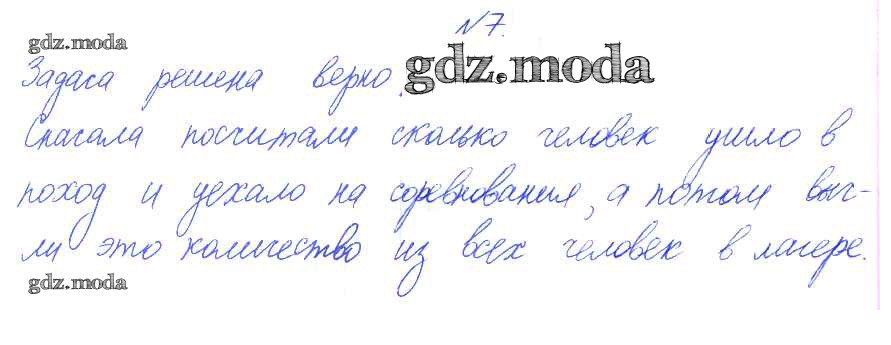 №7.
gdz.moda
Задача решена верно. gdz.moda
Сначала посчитали сколько человек ушло в
поход и уехало на соревнования, а потом выч-
ли это количество из всех человек в лагере.
gdz.moda